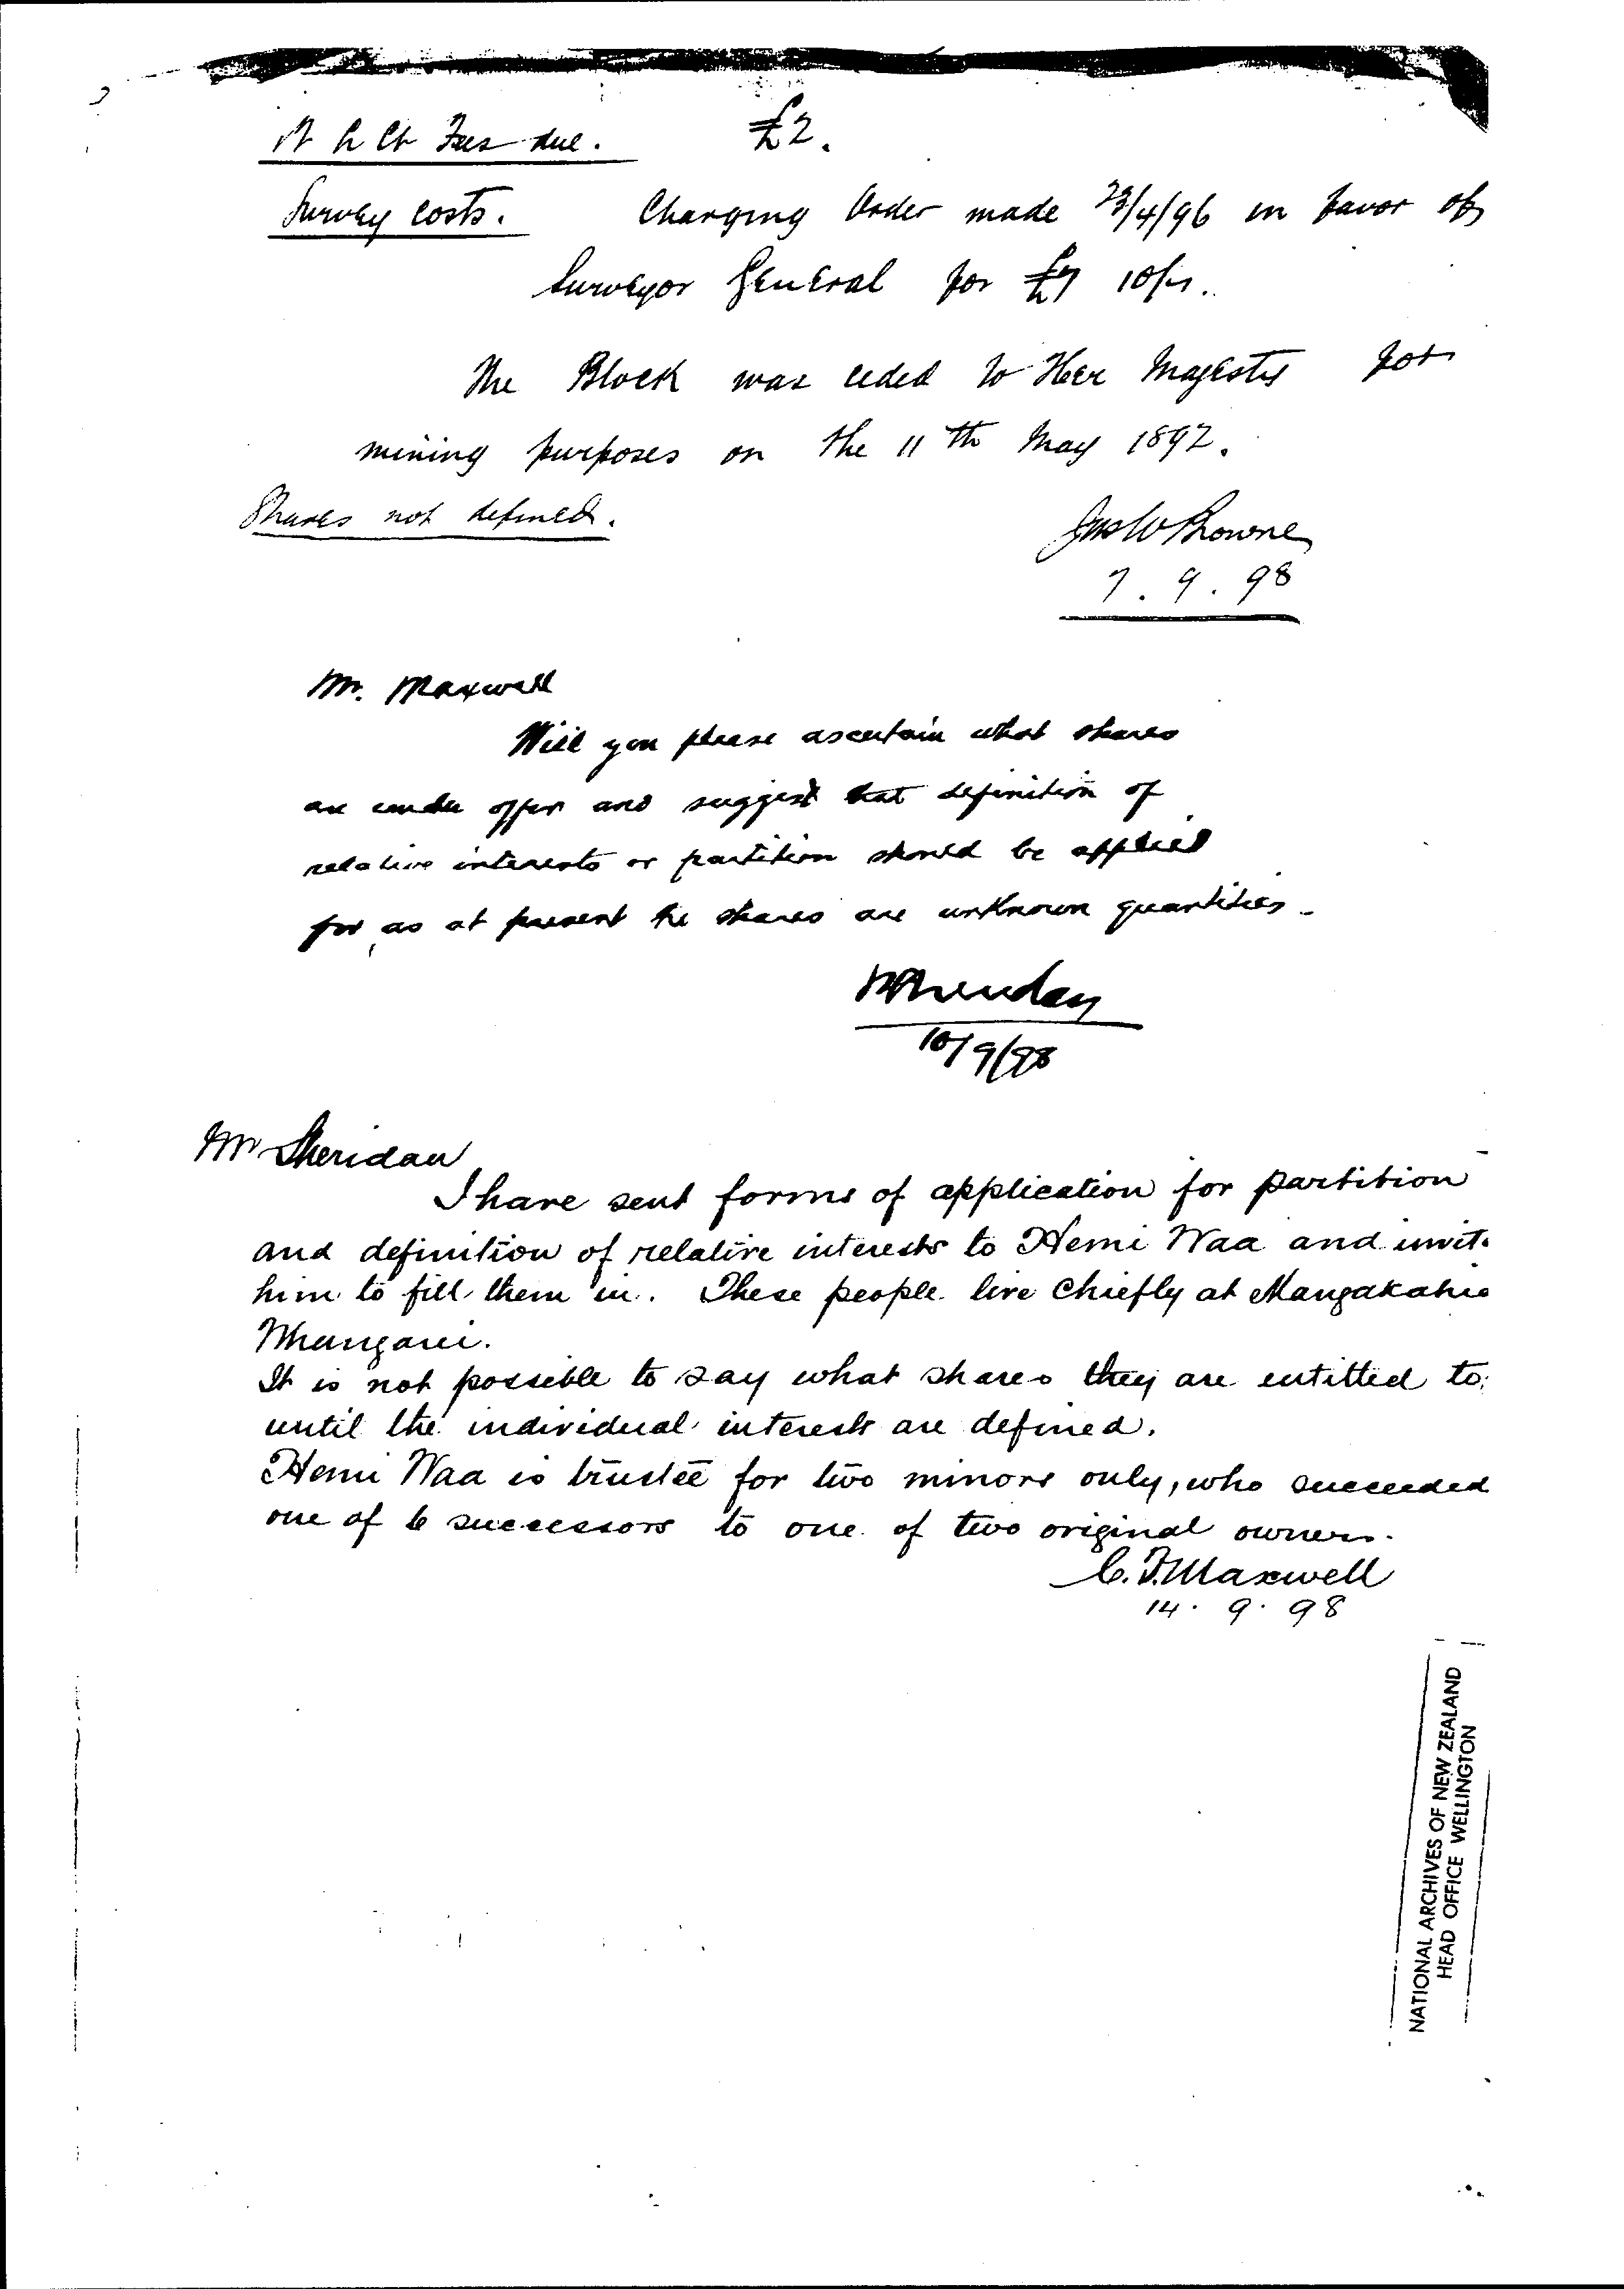 N L Ct Fees due. £2.
Survey costs. Charging Order made 23/4/96 in favor of
Surveyor General for £7 10/-.
The Block was ceded to Her Majesty for
mining purposes on the 11th May 1897.
Shares not defined.
Jas W Browne
7. 9. 98
Mr. Maxwell
Will you please ascertain what shares
are under offer and suggest that definition of
relative interests or partition should be applied
for, as at present the shares are unknown quantities.
Sheridan
10/9/98
Mr Sheridan
I have sent forms of application for partition
and definition of relative interests to Hemi Waa and invite
him to fill them in. These people live chiefly at Mangakahia
Whangarei.
It is not possible to say what shares they are entitled to
until the individual interests are defined.
Hemi Waa is trustee for two minors only, who succeeded
one of 6 successors to one of two original owners.
C. F. Maxwell
14. 9. 98
NATIONAL ARCHIVES OF NEW ZEALAND
HEAD OFFICE WELLINGTON